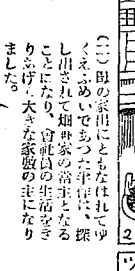 (二)母の家出にともなはれてゆ
くえふめいであつた は、探
し出されて畑野家の當主となる
ことになり、會社員の生活をき
りあげて大きな家敷の主になり
ました。
2
ツ